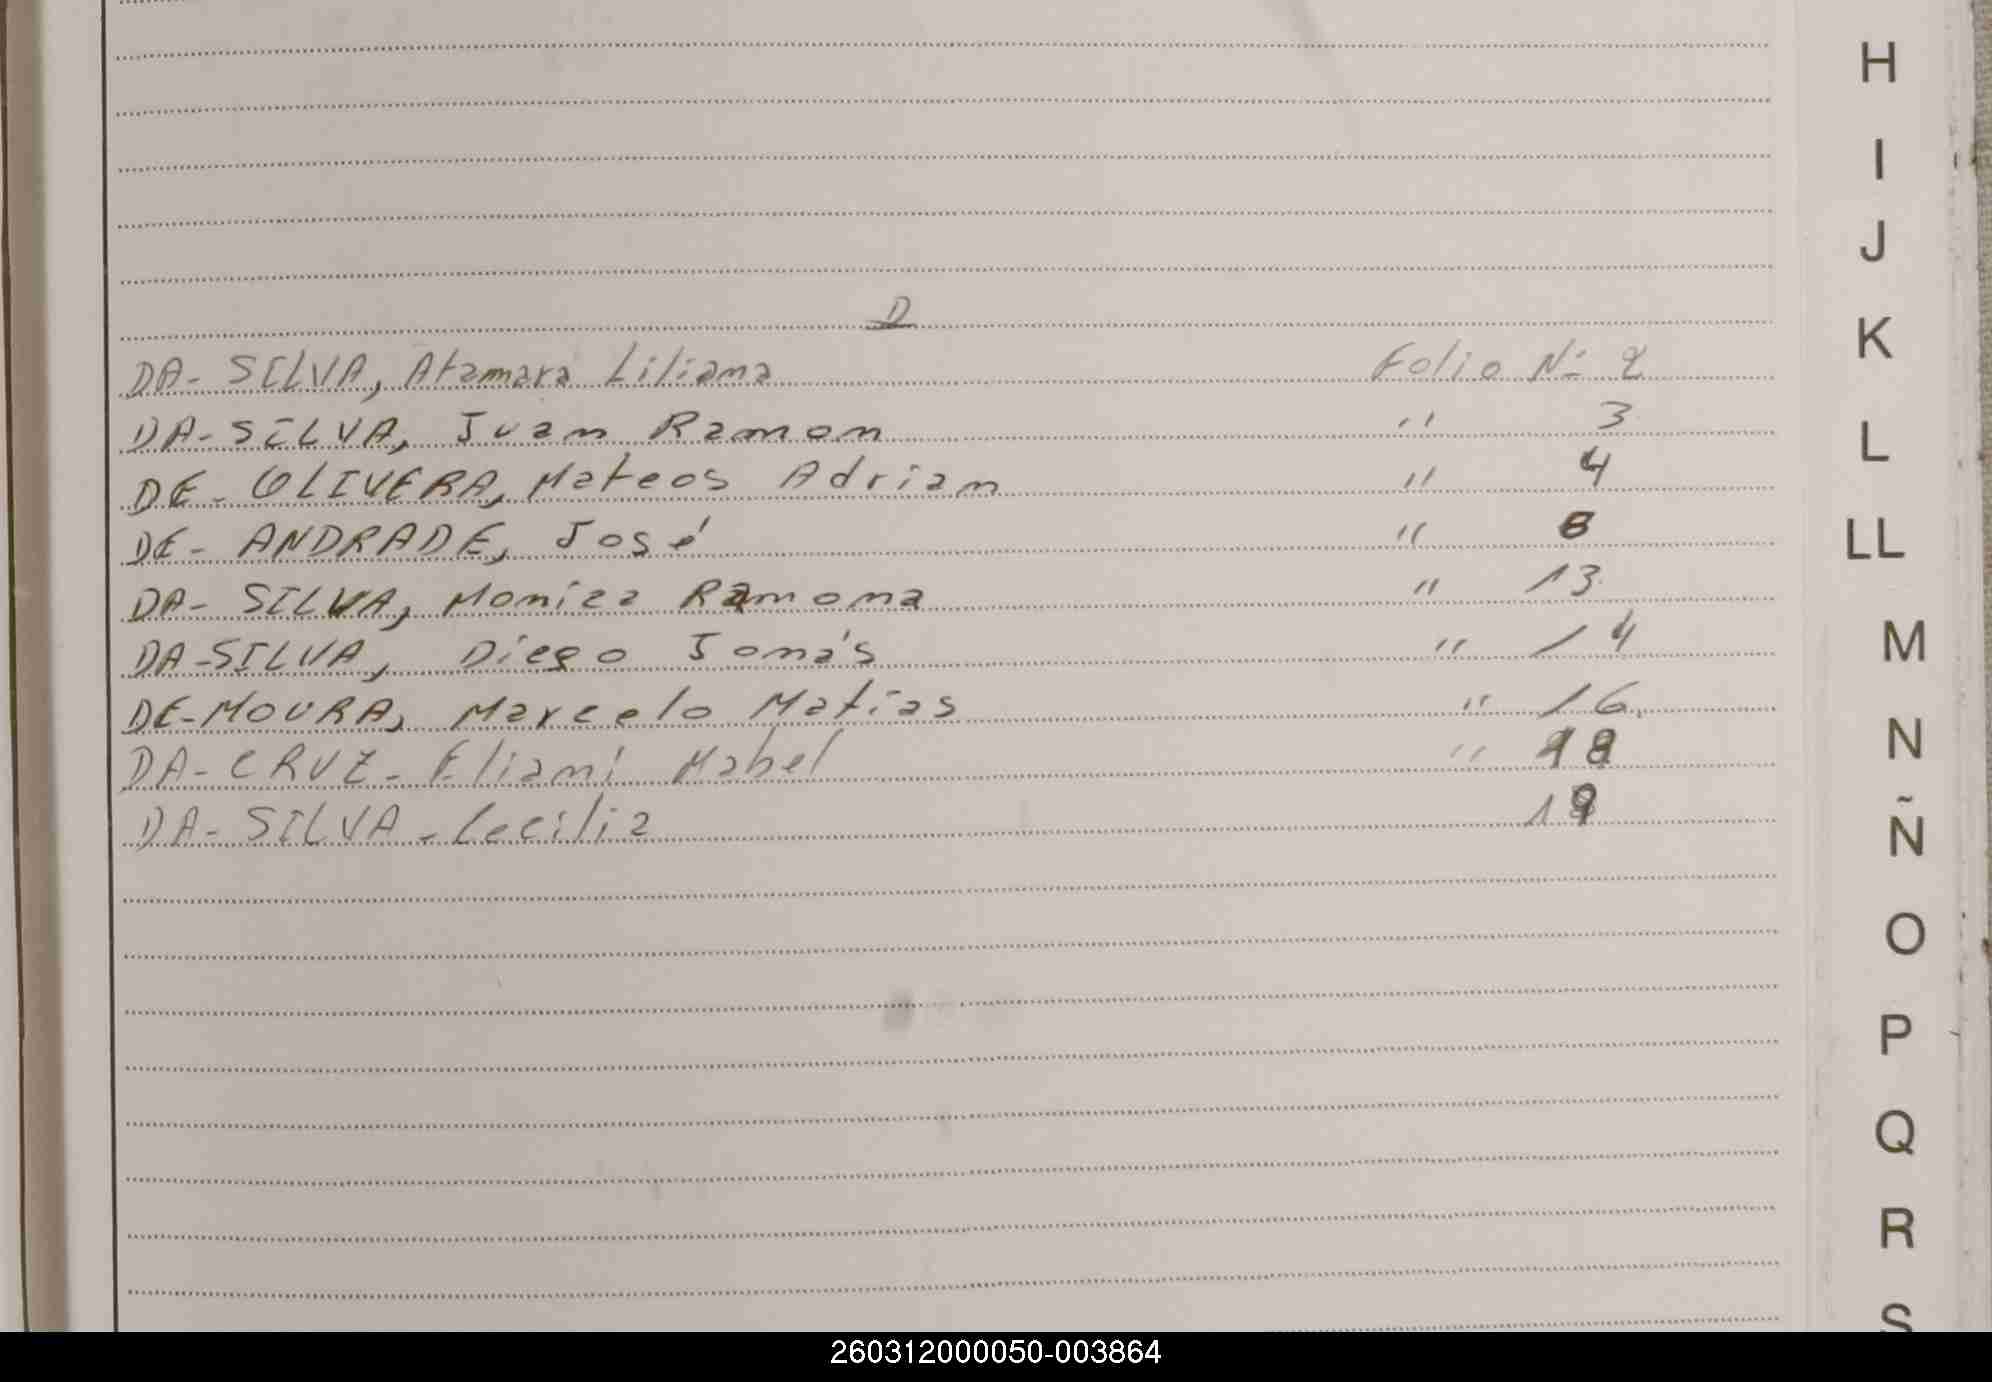 D
DA- SILVA, Atamara Liliana Folio Nº 2
DA-SILVA, Juan Ramon " 3
DE- OLIVERA, Mateos Adrian " 4
DE- ANDRADE, José " 8
DA- SILVA, Monica Ramona " 13
DA-SILVA, Diego Tomás " 14
DE-MOURA, Marcelo Matias " 16.
DA-CRUZ- Eliani Mabel " 18
DA- SILVA - Cecilia 19
H
I
J
K
L
LL
M
N
Ñ
O
P
Q
R
S
260312000050-003864